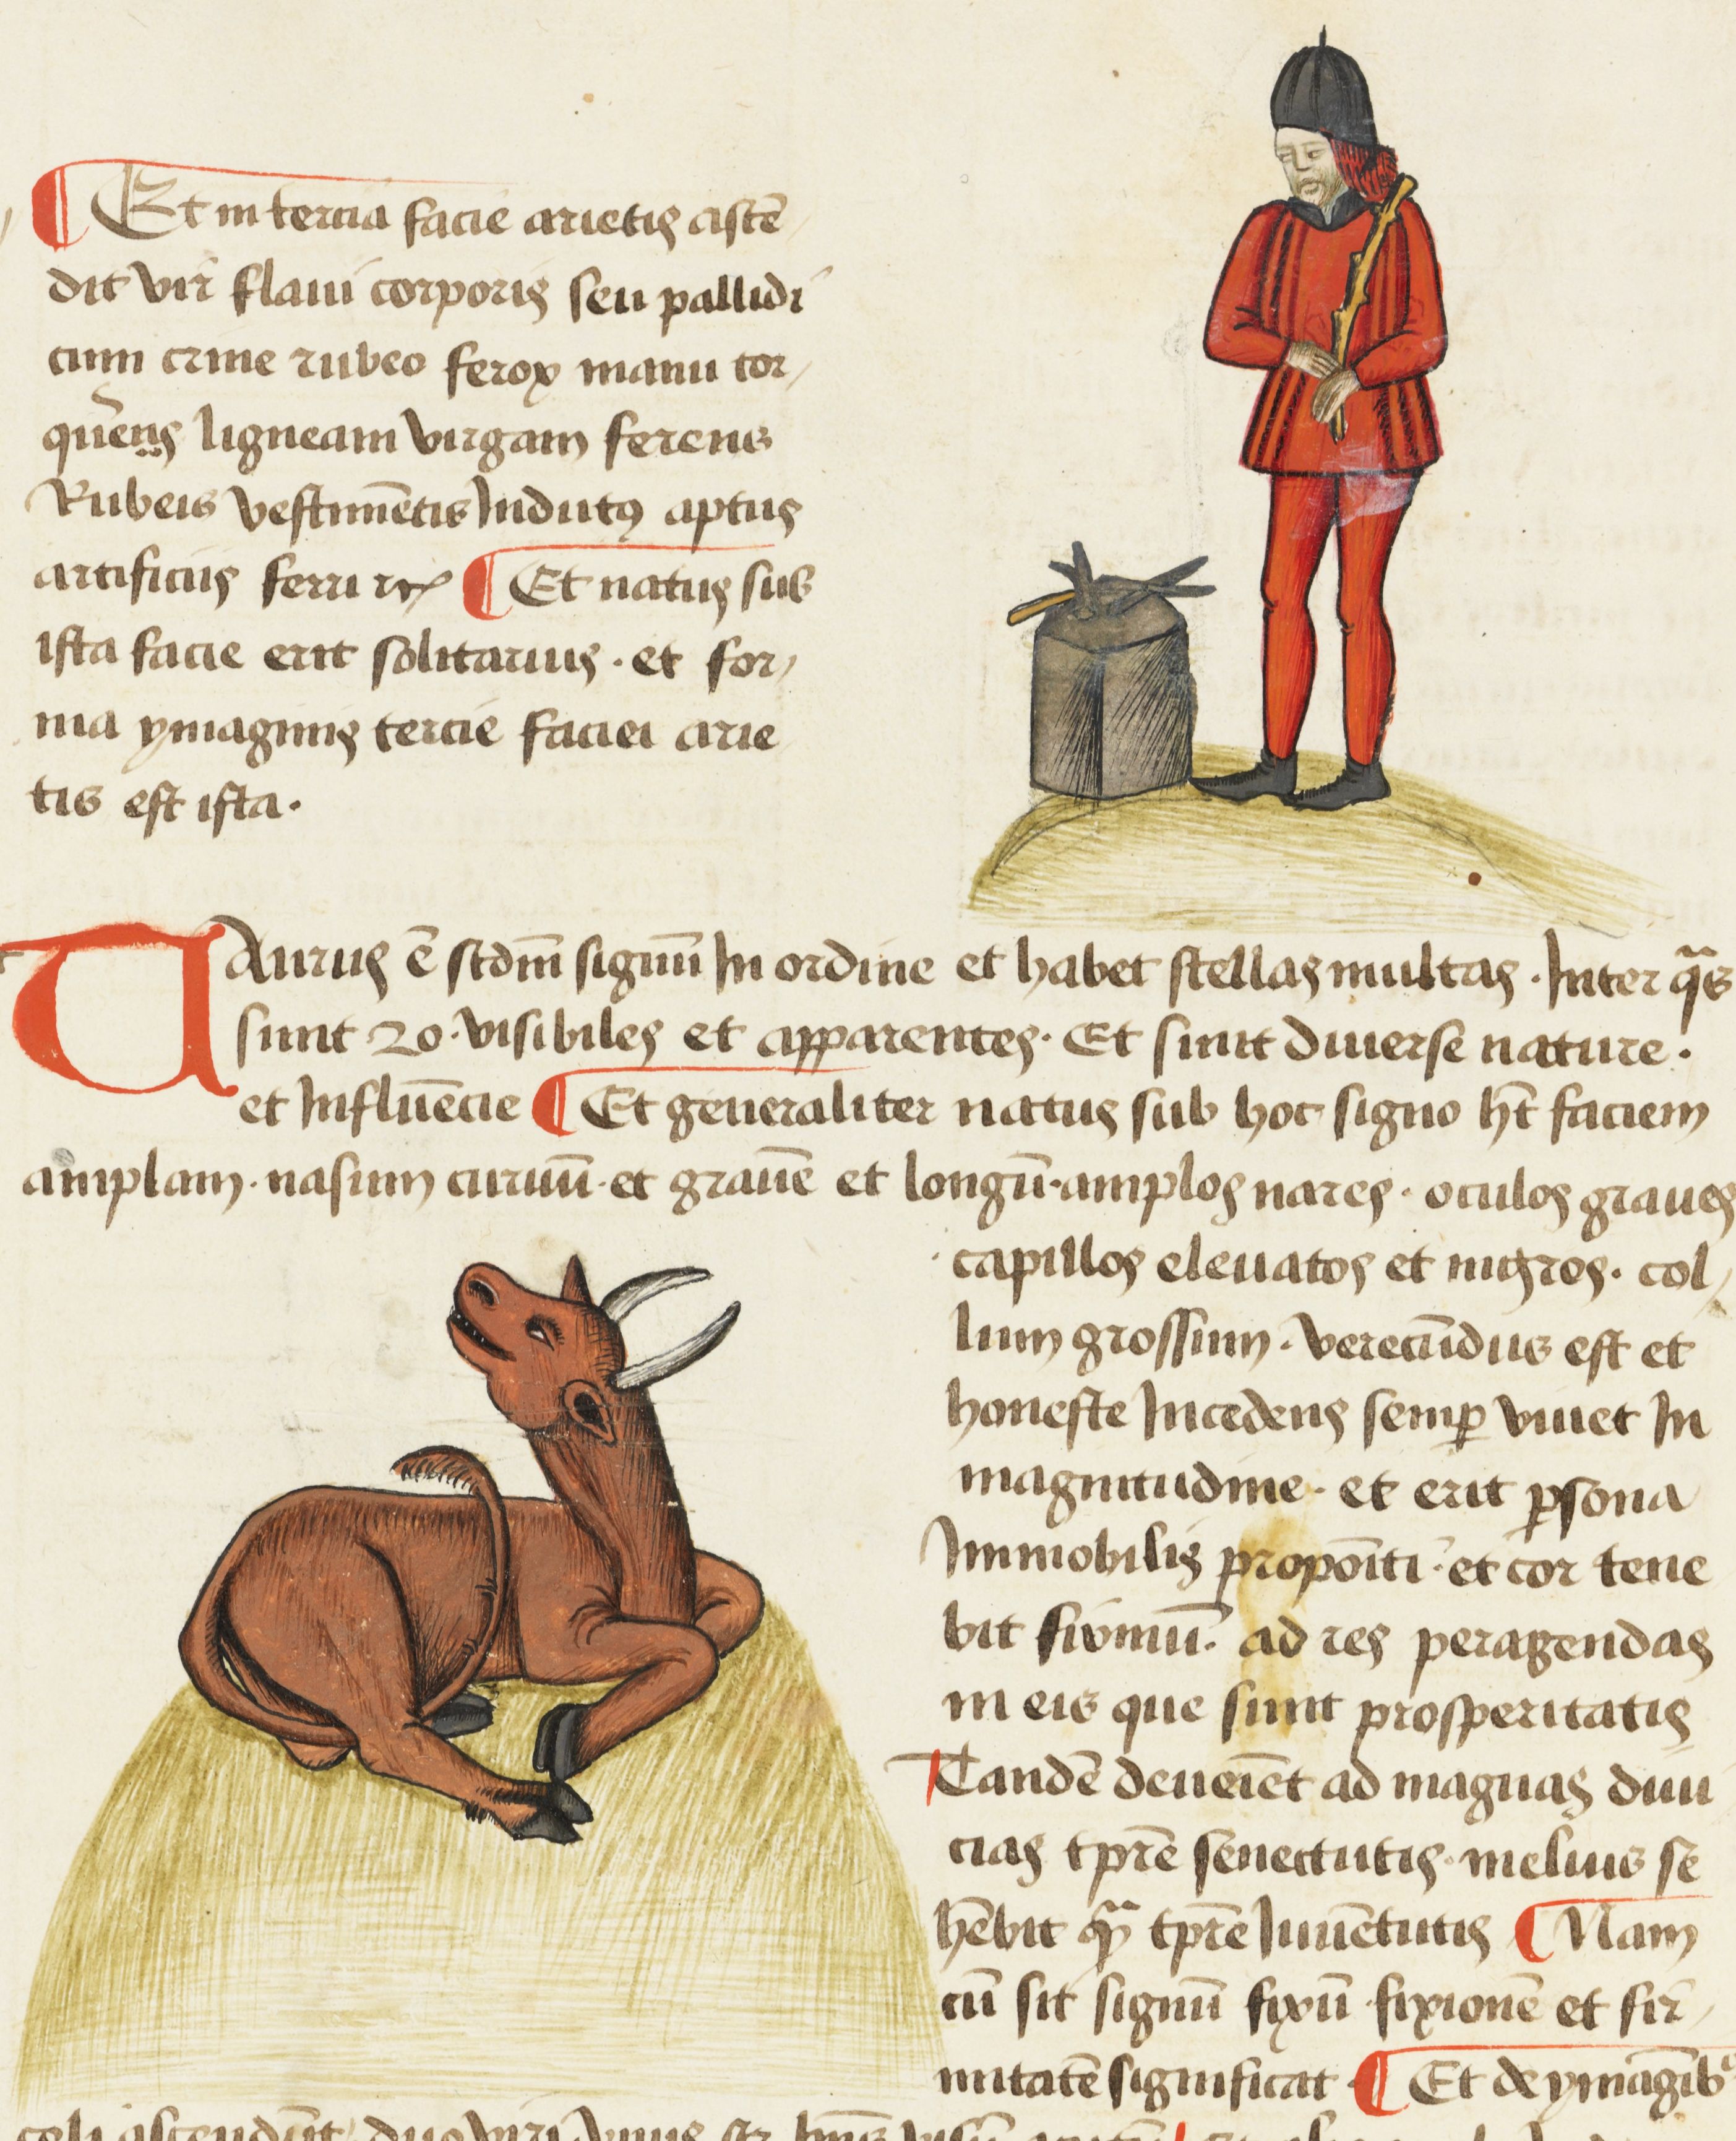 Et in tercia facie arietis asten
dit vir flaui corporis seu pallidi
cum crine rubeo ferox manu tor
quens ligneam virgam ferens
Rubeis vestimētis Indutꝯ aptus
artificiis ferri
Et natus sub
ista facie erit solitarius · et for
ma ymaginis tercie faciei arie
tis est ista ·
TAurus ē scdm̄ signū In ordine et habet stellas multas · Inter q̄s
sunt 20 · visibiles et apparentes · Et sunt diuerse nature ·
et Influēcie Et generaliter natus sub hoc signo ht̄ faciem
amplam · nasum curuū · et grauē et longū · amplos nares · oculos graues
capillos eleuatos et nigros · col
lum grossum · verecūdus est et
honeste Incedens semꝑ viuet In
magnitudine · et erit ꝑsona
Immobilis propoīti · et cor tene
bit firmū · ad res peragendas
in eis que sunt prosperitatis
Tandē deueīet ad magnas diui
cias tp̄re senectutis · melius se
hēbit qͣ̄ tp̄re Iuuētutis Nam
cū sit signū fixū fixionē et fir
mitatē significat · Et de ymagīibꝯ
celi ascendūt duo viri vnus